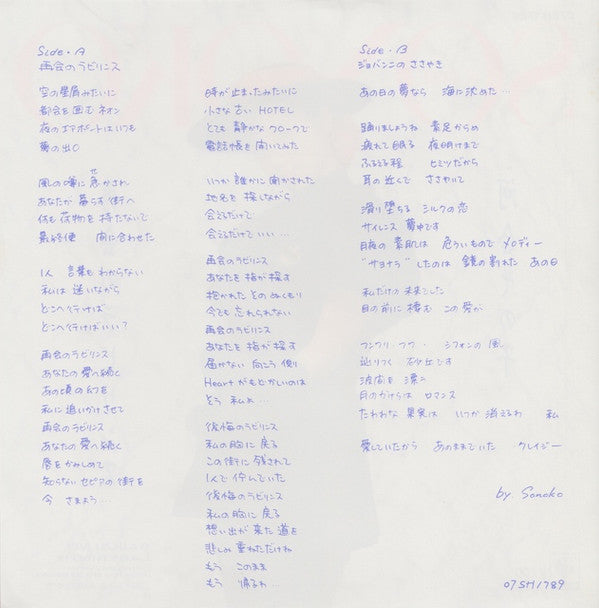 Side・A
再会のラビリンス
空の星屑みたいに
都会を囲む ネオン
夜のエアポートはいつも
夢の出口
せ
風の噂に 急かされ
あなたが 暮らす 街へ
何も荷物を 持たないで
最終便 間に合わせた
1人 言葉も わからない
私は 迷いながら
どこへ行けば
どこへ行けばいい?
再会のラビリンス
あなたの 愛へ続く
あの頃の幻を
私に 追いかけさせて
再会のラビリンス
あなたの 愛へ続く
唇をかみしめて
知らない セピアの 街を
今 さまよう…
時が止まったみたいに
小さな古い HOTEL
とても 静かな クロークで
電話帳を 開いてみた
いつか 誰かに 聞かされた
地名を 探しながら
会えるだけで
会えるだけで いい…
再会のラビリンス
あなたを 指が 探す
抱かれた その ぬくもり
今でも 忘れられない
再会のラビリンス
あなたを 指が 探す
届かない 向こう 側
Heart がもどかしいのは
そう 私よ…
後悔のラビリンス
私の胸に 戻る
この街に 残されて
1人で 佇んでいた
後悔のラビリンス
私の胸に 戻る
想い出が 来た 道を
悲しみ 重ねただけね
もう このまま
もう 帰るわ…
Side・B
ジョバンニの ささやき
あの日の 夢なら 海に沈めた…
踊りましょうね 素足からめ
疲れて 眠る 夜明けまで
ふるえる程 ヒミツだから
耳の近くで ささやいて
滑り堕ちる シルクの恋
サイレンス 夢中です
の 素肌は 危ういもので メロディー
“サヨナラ”したのは 鏡の割れた あの日
私だけの 未来でした
目の前に 棲む この愛が
フワリ フワ・ シフォンの風
辿りつく 砂丘です
波間を 漂う
月のかけらは ロマンス
たわわな 果実は いつか 消えるわ 私
愛していたから あのままでいた クレイジー
by. Sonoko
07SH1789